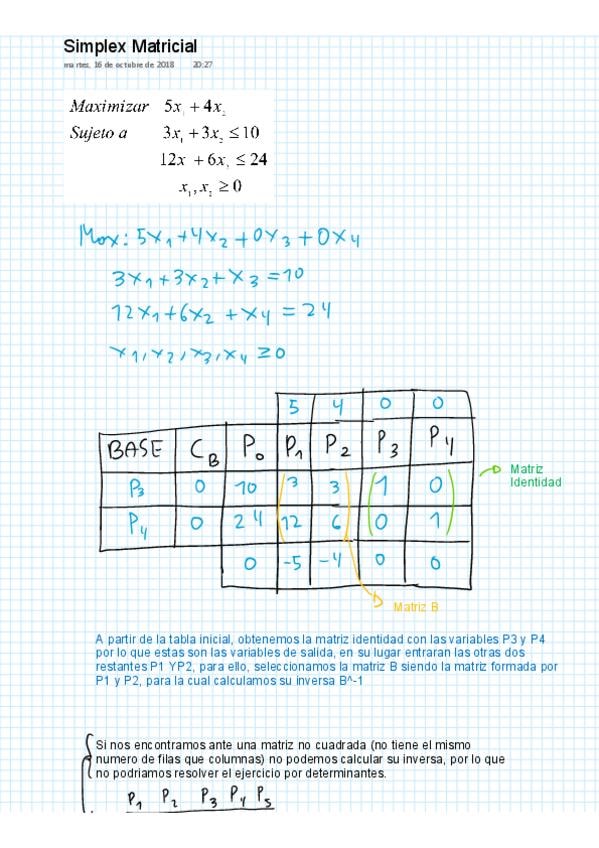 Simplex Matricial
martes, 16 de octubre de 2018 20:27
Maximizar 5x₁ + 4x₂
Sujeto a 3x₁ + 3x₂ ≤ 10
12x + 6x₂ ≤ 24
x₁, x₂ ≥ 0
Max: 5x₁ + 4x₂ + 0x₃ + 0x₄
3x₁ + 3x₂ + x₃ = 10
12x₁ + 6x₂ + x₄ = 24
x₁, x₂, x₃, x₄ ≥ 0
5 4 0 0
BASE C_B P₀ P₁ P₂ P₃ P₄
P₃ 0 10 3 3 1 0
P₄ 0 24 12 6 0 1
0 -5 -4 0 0
Matriz
Identidad
Matriz B
A partir de la tabla inicial, obtenemos la matriz identidad con las variables P3 y P4
por lo que estas son las variables de salida, en su lugar entraran las otras dos
restantes P1 YP2, para ello, seleccionamos la matriz B siendo la matriz formada por
P1 y P2, para la cual calculamos su inversa B^-1
Si nos encontramos ante una matriz no cuadrada (no tiene el mismo
numero de filas que columnas) no podemos calcular su inversa, por lo que
no podriamos resolver el ejercicio por determinantes.
P₁ P₂ P₃ P₄ P₅